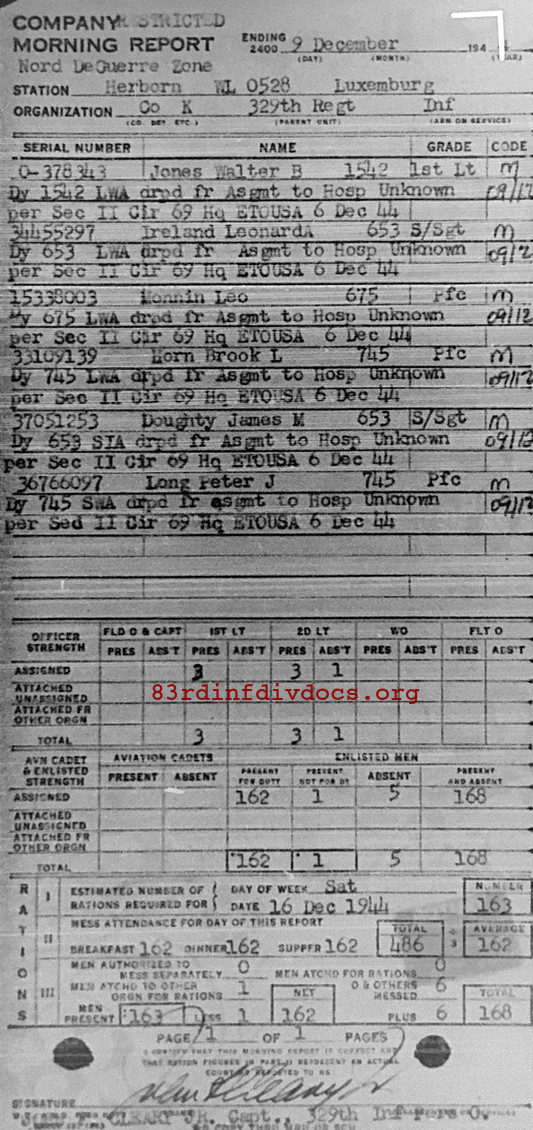 COMPANY RESTRICTED
MORNING REPORT ENDING 2400 9 December 194
(DAY) (MONTH) (YEAR)
Nord DeGuerre Zone
STATION Herborn WL 0528 Luxemburg
ORGANIZATION Co K 329th Regt Inf
(CO. DET. ETC.) (PARENT UNIT) (ARM OR SERVICE)
SERIAL NUMBER NAME GRADE CODE
O-378343 Jones Walter B 1542 1st Lt M
Dy 1542 LWA drpd fr Asgmt to Hosp Unknown 09/12
per Sec II Cir 69 Hq ETOUSA 6 Dec 44
34455297 Ireland LeonardA 653 S/Sgt M
Dy 653 LWA drpd fr Asgmt to Hosp Unknown 09/12
per Sec II Cir 69 Hq ETOUSA 6 Dec 44
15338003 Monnin Leo 675 Pfc M
Dy 675 LWA drpd fr Asgmt to Hosp Unknown 09/12
per Sec II Cir 69 Hq ETOUSA 6 Dec 44
33109139 Horn Brook L 745 Pfc M
Dy 745 LWA drpd fr Asgmt to Hosp Unknown 09/12
per Sec II Cir 69 Hq ETOUSA 6 Dec 44
37051253 Doughty James M 653 S/Sgt M
Dy 653 SIA drpd fr Asgmt to Hosp Unknown 09/12
per Sec II Cir 69 Hq ETOUSA 6 Dec 44
36766097 Long Peter J 745 Pfc M
Dy 745 SWA drpd fr asgmt to Hosp Unknown 09/12
per Sed II Cir 69 Hq ETOUSA 6 Dec 44
OFFICER STRENGTH FLD O & CAPT 1ST LT 2D LT WO FLT O
PRES ABS'T PRES ABS'T PRES ABS'T PRES ABS'T PRES ABS'T
ASSIGNED 3 3 1
ATTACHED UNASSIGNED
83rdinfdivdocs.org
ATTACHED FR OTHER ORGN
TOTAL 3 3 1
AVN CADET & ENLISTED STRENGTH AVIATION CADETS ENLISTED MEN
PRESENT ABSENT PRESENT FOR DUTY PRESENT NOT FOR DY ABSENT PRESENT AND ABSENT
ASSIGNED 162 1 5 168
ATTACHED UNASSIGNED
ATTACHED FR OTHER ORGN
TOTAL 162 1 5 168
RATIONS
I ESTIMATED NUMBER OF RATIONS REQUIRED FOR DAY OF WEEK Sat NUMBER
DATE 16 Dec 1944 163
II MESS ATTENDANCE FOR DAY OF THIS REPORT TOTAL AVERAGE
BREAKFAST 162 DINNER 162 SUPPER 162 486 ÷ 3 162
III MEN AUTHORIZED TO MESS SEPARATELY 0 MEN ATCHD FOR RATIONS 0
MEN ATCHD TO OTHER ORGN FOR RATIONS 1 NET O & OTHERS MESSED 6 TOTAL
MEN PRESENT 163 LESS 1 162 PLUS 6 168
PAGE 1 OF 1 PAGES
I CERTIFY THAT THIS MORNING REPORT IS CORRECT AND
THAT RATION FIGURES IN PART II REPRESENT AN ACTUAL
COUNT REPORTED TO ME
SIGNATURE
CLEARY JR. Capt., 329th Inf Pers O.